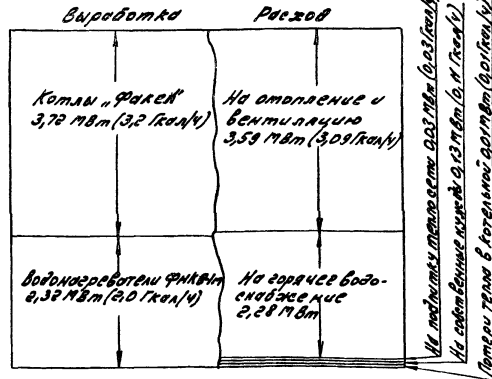 Выработка
Расход
Котлы „Факел"
3,72 МВт (3,2 Гкал/ч)
На отопление и
вентиляцию
3,59 МВт (3,09 Гкал/ч)
Водонагреватели
2,32 МВт (2,0 Гкал/ч)
На горячее водо-
снабжение
2,28 МВт
На подпитку теплосети 0,03 МВт (0,03 Гкал/ч)
На собственные нужды 0,13 МВт (0,11 Гкал/ч)
Потери тепла в котельной 0,01 МВт (0,01 Гкал/ч)